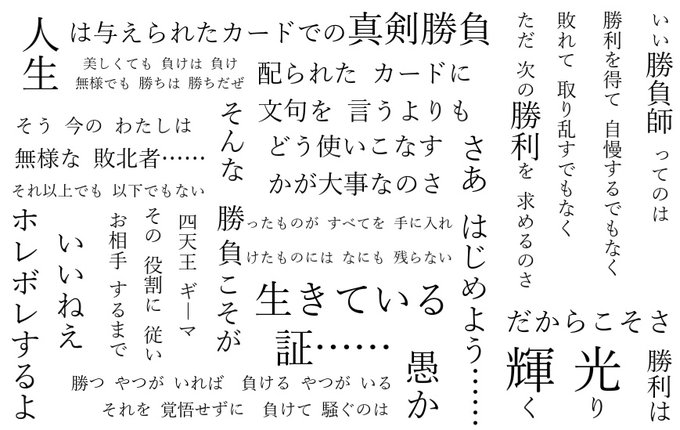 人生は与えられたカードでの真剣勝負
美しくても 負けは 負け
無様でも 勝ちは 勝ちだぜ
配られた カードに
文句を 言うよりも
どう使いこなす
かが大事なのさ
いい勝負師 ってのは
勝利を得て 自慢するでもなく
敗れて 取り乱すでもなく
ただ 次の勝利を 求めるのさ
そう 今の わたしは
無様な 敗北者……
それ以上でも 以下でもない
そんな
勝負こそが
生きている
証……
さあ はじめよう……
勝ったものが すべてを 手に入れ
負けたものには なにも 残らない
四天王 ギーマ
その 役割に 従い
お相手 するまで
いいねえ
ホレボレするよ
勝つ やつが いれば 負ける やつが いる
それを 覚悟せずに 負けて 騒ぐのは
愚か
だからこそさ
勝利は
光り
輝く